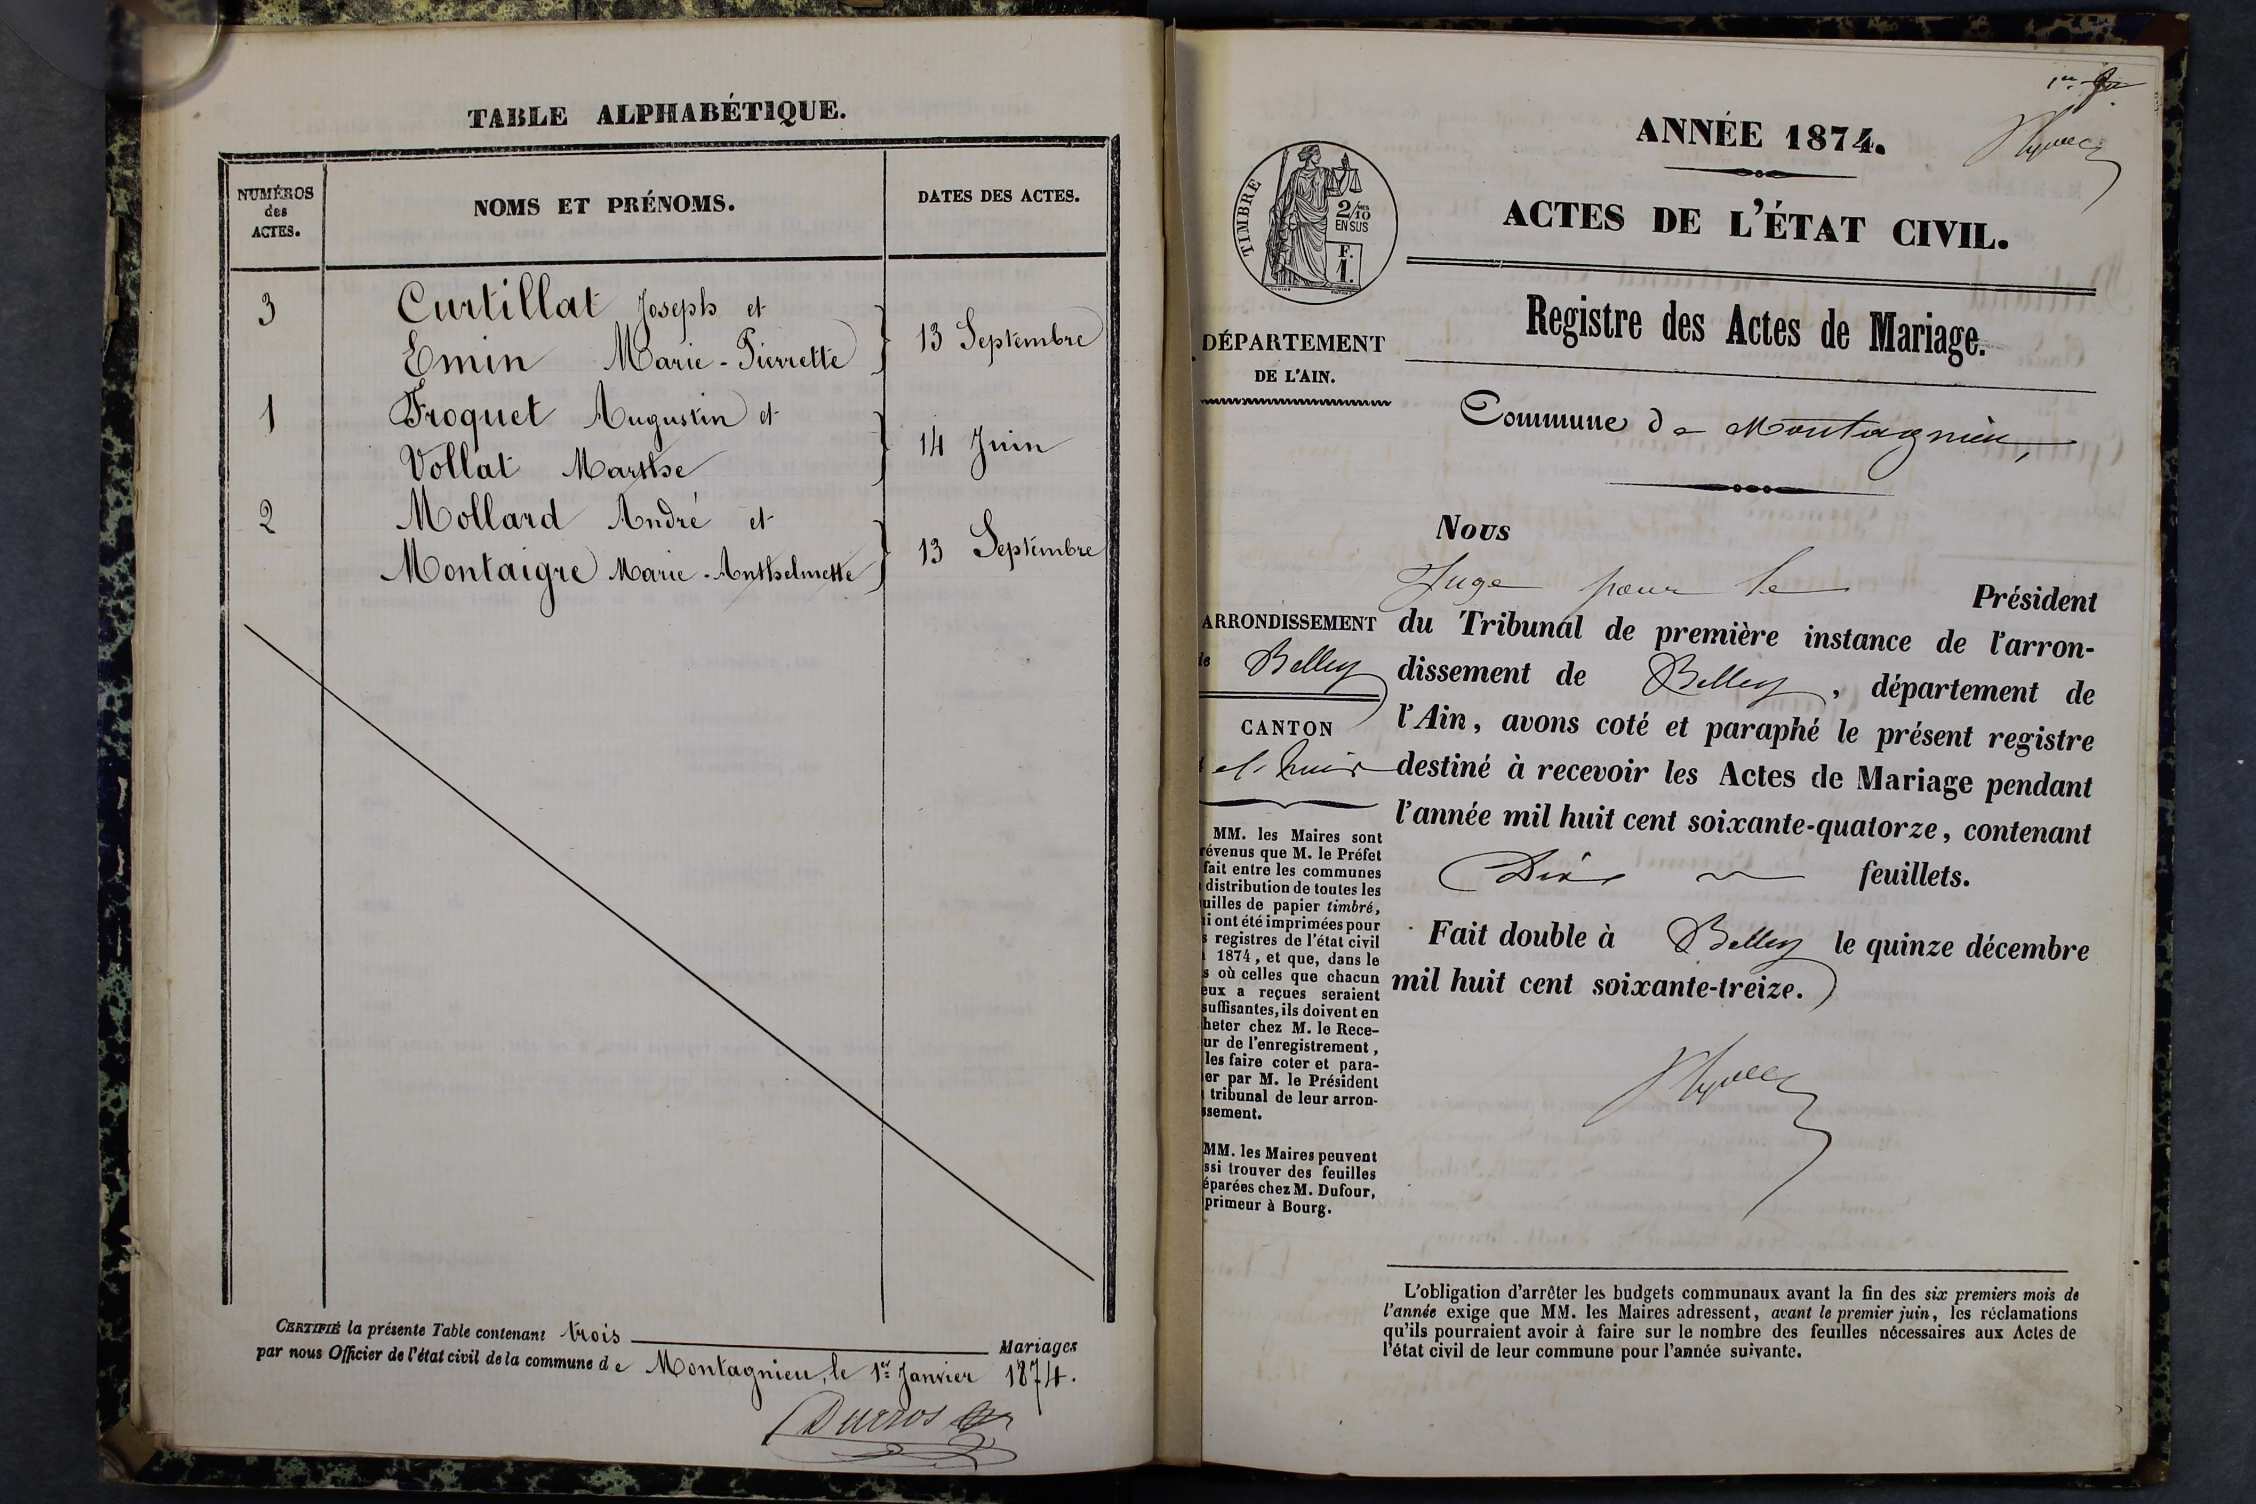 TABLE ALPHABÉTIQUE.
NUMÉROS
des
ACTES.
NOMS ET PRÉNOMS.
DATES DES ACTES.
3
Curtillat Joseph et
Emin Marie-Pierrette
13 Septembre
1
Froquet Augustin et
Vollat Marthe
14 Juin
2
Mollard André et
Montaigre Marie-Anthelmette
13 Septembre
CERTIFIÉ la présente Table contenant trois Mariages
par nous Officier de l'état civil de la commune de Montagnieu, le 1er Janvier 1874.
1er
ANNÉE 1874.
ACTES DE L'ÉTAT CIVIL.
TIMBRE
2/10
EN SUS
F.
1.
Registre des Actes de Mariage.
DÉPARTEMENT
DE L'AIN.
Commune de Montagnieu,
Nous
Juge pour le Président
ARRONDISSEMENT
de Belley
CANTON
du Tribunal de première instance de l'arron-
dissement de Belley, département de
l'Ain, avons coté et paraphé le présent registre
destiné à recevoir les Actes de Mariage pendant
l'année mil huit cent soixante-quatorze, contenant
Dix feuillets.
Fait double à Belley le quinze décembre
mil huit cent soixante-treize.
MM. les Maires sont
révenus que M. le Préfet
fait entre les communes
distribution de toutes les
uilles de papier timbré,
i ont été imprimées pour
s registres de l'état civil
1874, et que, dans le
s où celles que chacun
eux a reçues seraient
suffisantes, ils doivent en
heter chez M. le Rece-
ur de l'enregistrement,
les faire coter et para-
er par M. le Président
tribunal de leur arron-
ssement.
MM. les Maires peuvent
ssi trouver des feuilles
éparées chez M. Dufour,
primeur à Bourg.
L'obligation d'arrêter les budgets communaux avant la fin des six premiers mois de
l'année exige que MM. les Maires adressent, avant le premier juin, les réclamations
qu'ils pourraient avoir à faire sur le nombre des feuilles nécessaires aux Actes de
l'état civil de leur commune pour l'année suivante.